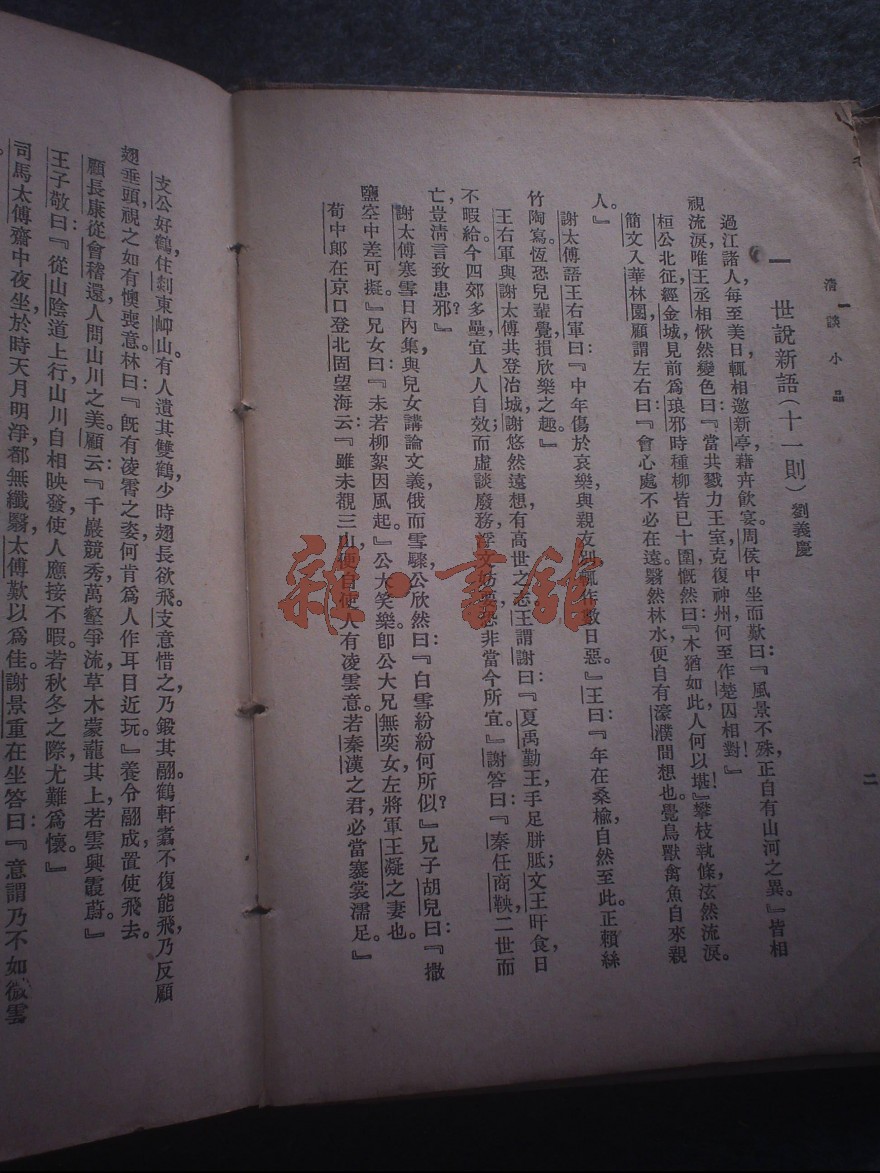 二
清談小品
一 世說新語（十一則）劉義慶
過江諸人，每至美日，輒相邀新亭，藉卉飲宴。周侯中坐而歎曰：『風景不殊，正自有山河之異。』皆相
視流淚，唯王丞相愀然變色曰：『當共戮力王室，克復神州，何至作楚囚相對！』
桓公北征，經金城，見前爲琅邪時種柳，皆已十圍，慨然曰：『木猶如此，人何以堪！』攀枝執條，泫然流淚。
簡文入華林園，顧謂左右曰：『會心處不必在遠。翳然林水，便自有濠濮間想也。覺鳥獸禽魚，自來親
人。』
謝太傅語王右軍曰：『中年傷於哀樂，與親友別，輒作數日惡。』王曰：『年在桑榆，自然至此。正賴絲
竹陶寫。恆恐兒輩覺損欣樂之趣。』
王右軍與謝太傅共登冶城，謝悠然遠想，有高世之志。王謂謝曰：『夏禹勤王，手足胼胝；文王旰食，日
不暇給。今四郊多壘，宜人人自效；而虛談廢務，浮文妨要，恐非當今所宜。』謝答曰：『秦任商鞅，二世而
亡，豈清言致患邪？』
謝太傅寒雪日內集，與兒女講論文義，俄而雪驟，公欣然曰：『白雪紛紛何所似？』兄子胡兒曰：『撒
鹽空中差可擬。』兄女曰：『未若柳絮因風起。』公大笑樂。卽公大兄無奕女，左將軍王凝之妻也。
荀中郎在京口，登北固望海云：『雖未覩三山，便自使人有凌雲意。若秦漢之君，必當褰裳濡足。』
支公好鶴，住剡東岇山。有人遺其雙鶴，少時翅長欲飛，支意惜之，乃鎩其翮。鶴軒翥不復能飛，乃反顧
翅垂頭，視之如有懊喪意。林曰：『既有凌霄之姿，何肯爲人作耳目近玩。』養令翮成，置使飛去。
顧長康從會稽還，人問山川之美。顧云：『千巖競秀，萬壑爭流，草木蒙籠其上，若雲興霞蔚。』
王子敬曰：『從山陰道上行，山川自相映發，使人應接不暇。若秋冬之際，尤難爲懷。』
司馬太傅齋中夜坐，於時天月明淨，都無纖翳，太傅歎以爲佳。謝景重在坐，答曰：『意謂乃不如微雲
雜·書館